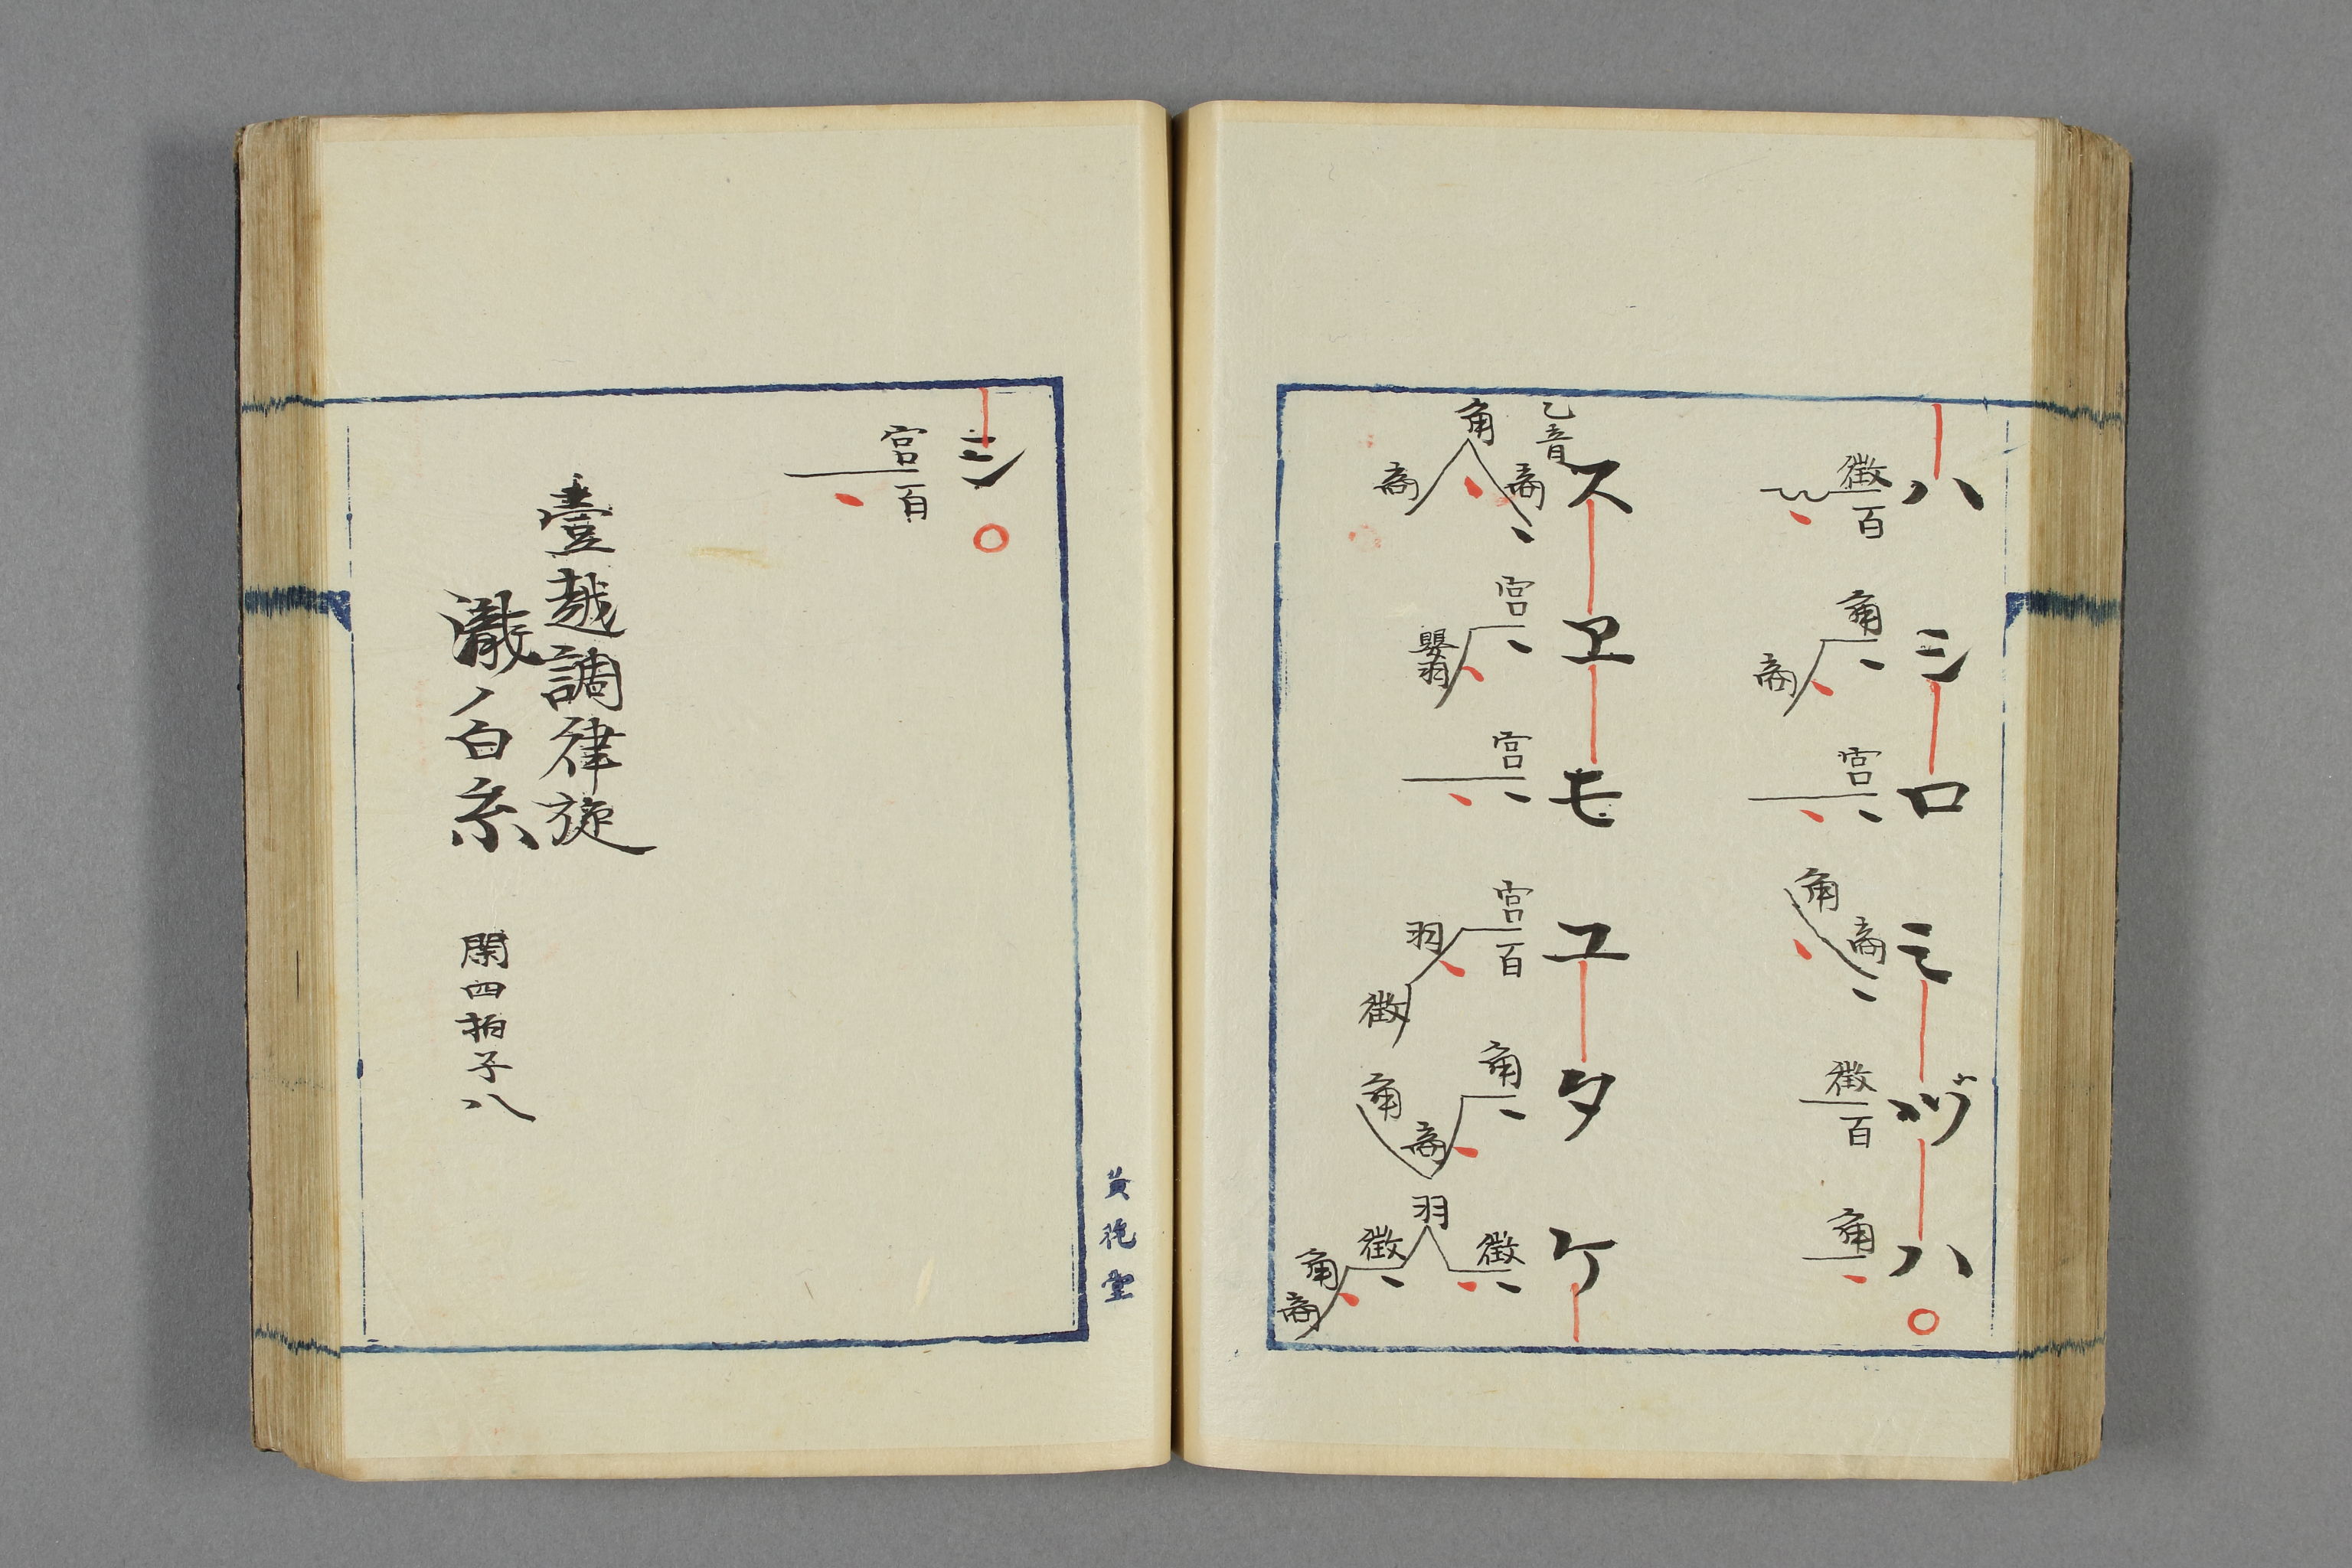 ハシロミヅハ
徴百 角商 宮 商角 徴百 角
スヱモユタケ
乙音
商角商 宮嬰羽 宮 宮百羽徴 角商角 徴羽徴角商
シ
宮百
壹越調律旋
瀧ノ白糸 閑四拍子八